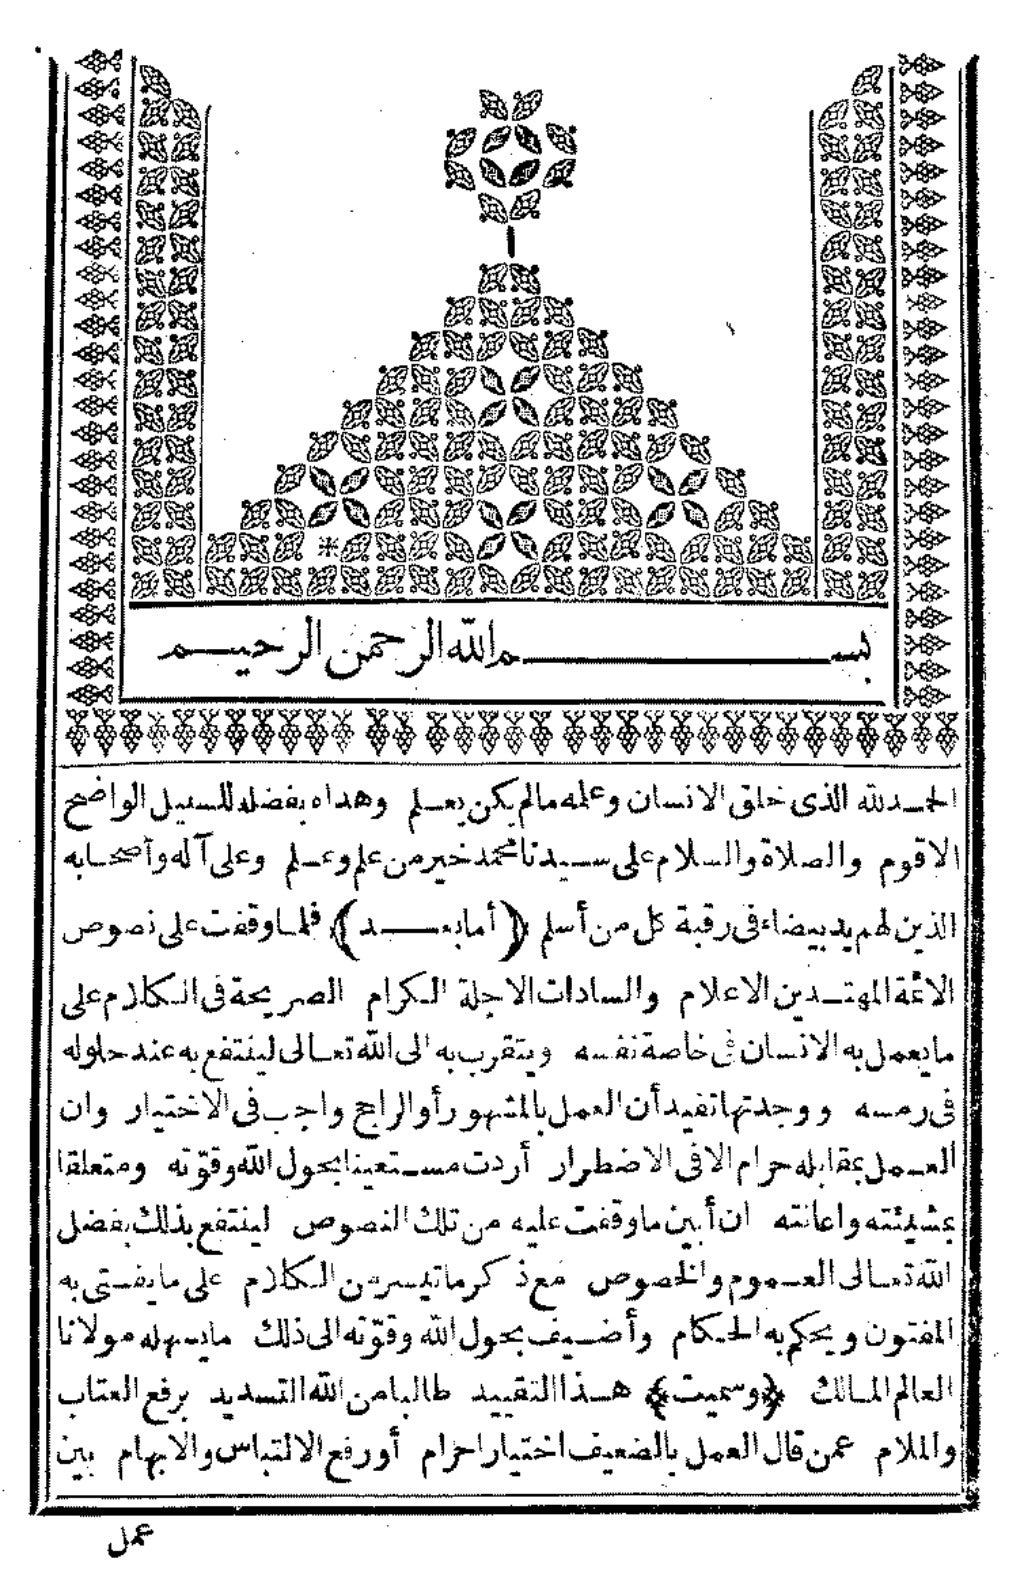 بسم الله الرحمن الرحيم
الحمد لله الذى خلق الانسان وعلمه مالم يكن يعلم وهداه بفضله للسبيل الواضح
الاقوم والصلاة والسلام على سيدنا محمد خير من علم وعلم وعلى آله وأصحابه
الذين لهم يد بيضاء فى رقبة كل من أسلم ﴿أما بعد﴾ فلما وقفت على نصوص
الائمة المهتدين الاعلام والسادات الاجلة الكرام الصريحة فى الكلام على
ما يعمل به الانسان فى خاصة نفسه ويتقرب به الى الله تعالى لينتفع به عند حلوله
فى رمسه ووجدتها تفيد أن العمل بالمشهور أو الراجح واجب فى الاختيار وان
العمل بمقابله حرام الا فى الاضطرار أردت مستعينا بحول الله وقوّته ومتعلقا
بمشيئته واعانته ان أبين ما وقفت عليه من تلك النصوص لينتفع بذلك بفضل
الله تعالى العموم والخصوص مع ذكر ما تيسر من الكلام على ما يفتى به
المفتون ويحكم به الحكام وأضيف بحول الله وقوّته الى ذلك ما يسهله مولانا
العالم المالك ﴿وسميت﴾ هذا التقييد طالبا من الله التسديد برفع العتاب
والملام عمن قال العمل بالضعيف اختيارا حرام أو رفع الالتباس والابهام بين
عمل